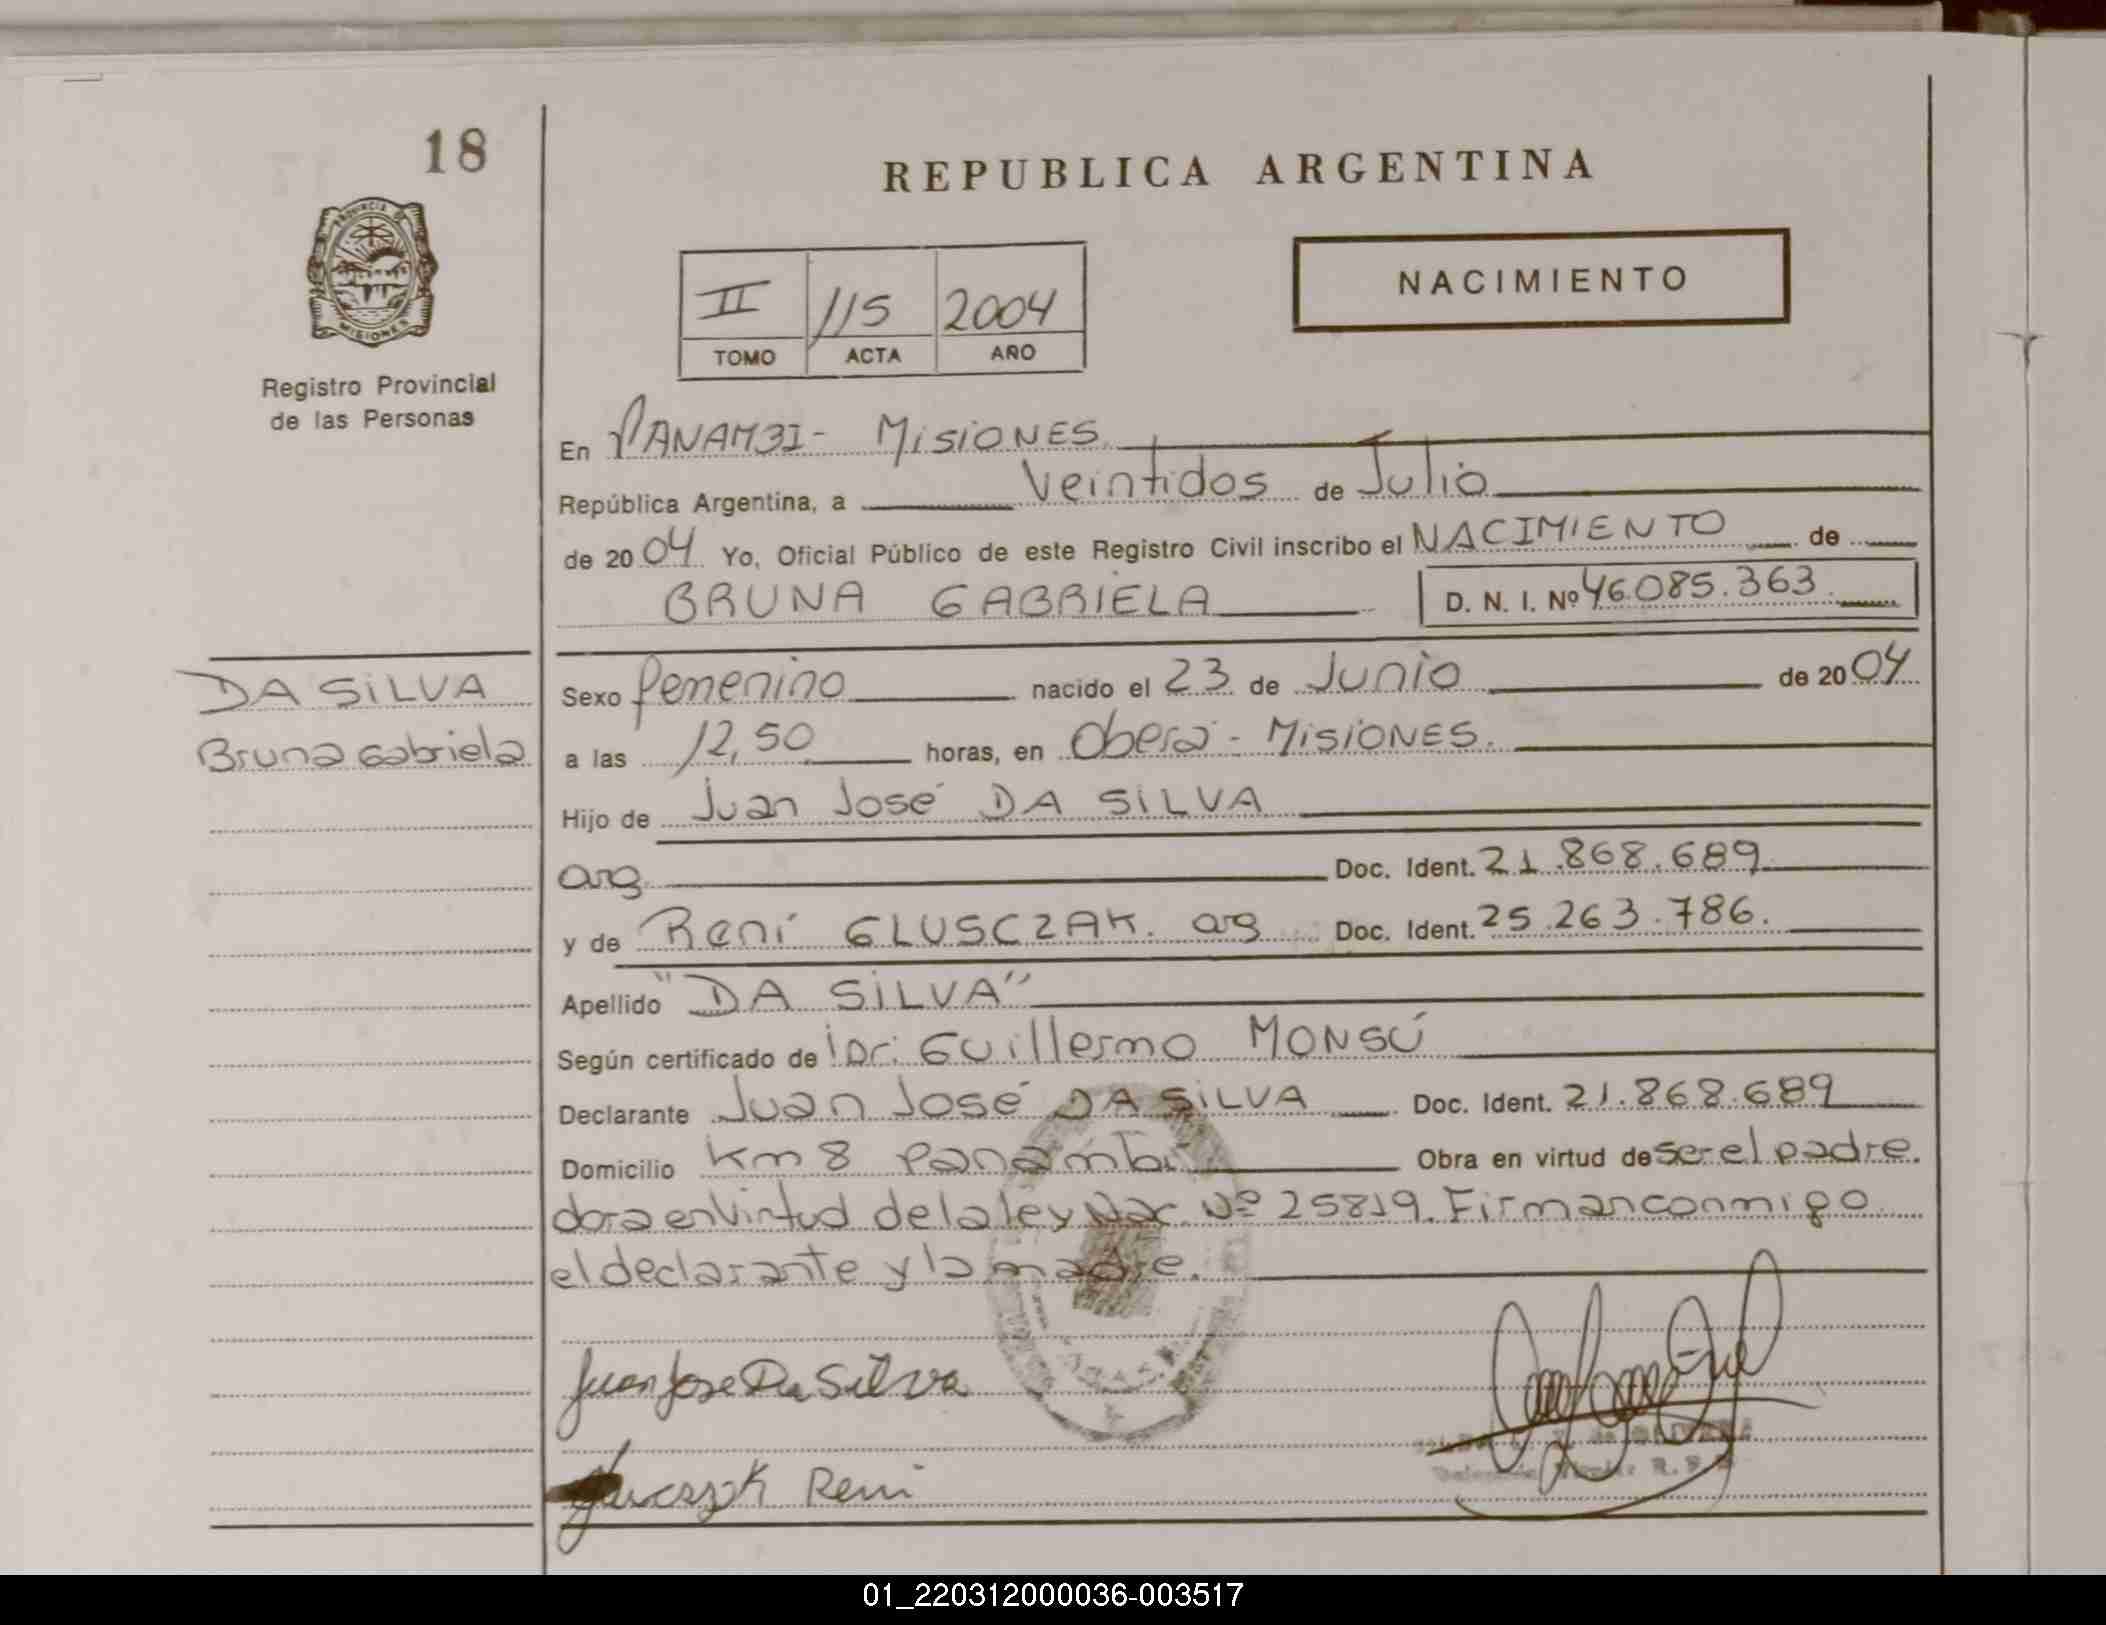 18
REPUBLICA ARGENTINA
PROVINCIA DE
MISIONES
Registro Provincial
de las Personas
NACIMIENTO
II 115 2004
TOMO ACTA AÑO
En PANAMBI - MISIONES
República Argentina, a Veintidos de Julio
de 2004 Yo, Oficial Público de este Registro Civil inscribo el NACIMIENTO de
BRUNA GABRIELA D. N. I. Nº 46.085.363
DA SILVA
Bruna Gabriela
Sexo femenino nacido el 23 de Junio de 2004
a las 12,50 horas, en Oberá - MISIONES.
Hijo de Juan José DA SILVA
arg. Doc. Ident. 21.868.689
y de Reni GLUSCZAK. arg Doc. Ident. 25.263.786.
Apellido "DA SILVA"
Según certificado de Dr. Guillermo MONSÚ
Declarante Juan José DA SILVA Doc. Ident. 21.868.689
Domicilio Km 8 Panambi Obra en virtud de ser el padre.
dora en virtud de la ley Nac. Nº 25819. Firman conmigo
el declarante y la madre.
Juan Jose Da Silva
Reni
01_220312000036-003517